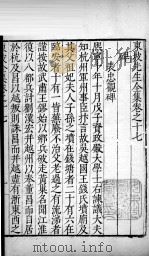 東坡先生全集卷之十七
碑
表忠觀碑
熙寧十年十月戊子資政殿大學士右諫議大夫
知杭州軍州事臣抃言故吳越國王錢氏墳廟及
其父祖妃夫人子孫之墳在錢塘者二十有六在
臨安者十有一皆蕪廢不治父老過之有流涕者
謹按故武肅王鏐始以鄉兵破走黃巢名聞江淮
復以八都兵討劉漢宏并越州以奉董昌而自居
於杭及昌以越叛則誅昌而并越盡有浙東西之